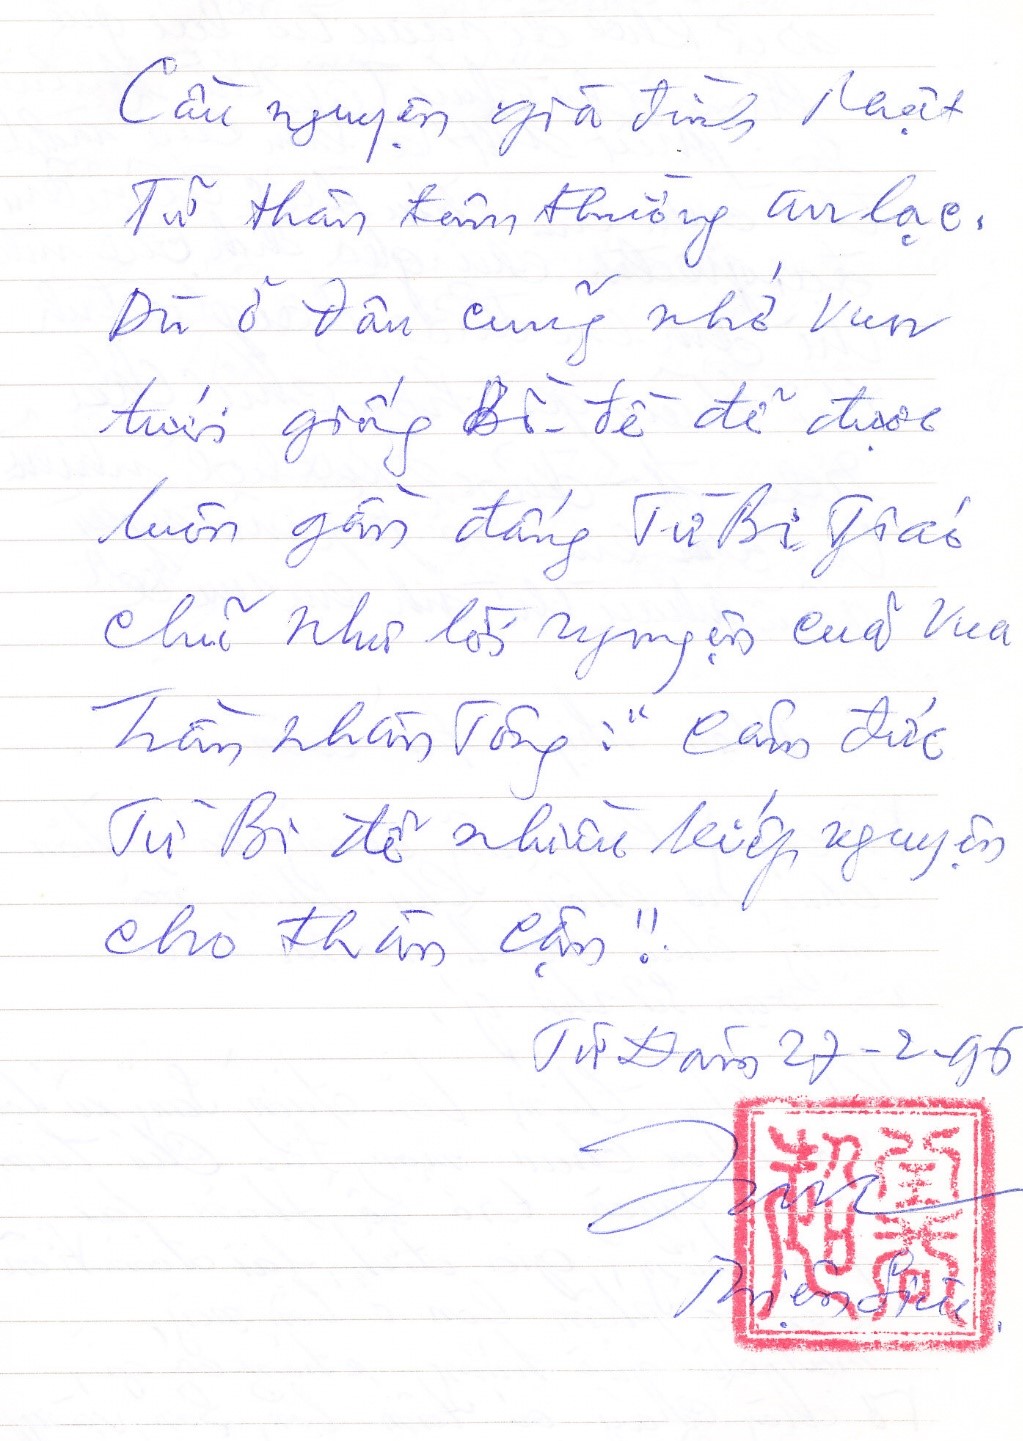 Cầu nguyện gia đình Nhật
Tứ thân tâm thường an lạc.
Dù ở đâu cũng nhớ vun
tưới giống Bồ-đề để được
luôn gần đấng Từ Bi Giáo
chủ như lời nguyện của Vua
Trần Nhân Tông: "Cảm đức
Từ Bi để nhiều kiếp nguyện
cho thân cận"!
Từ Đàm 27-2-96
Thiện Siêu